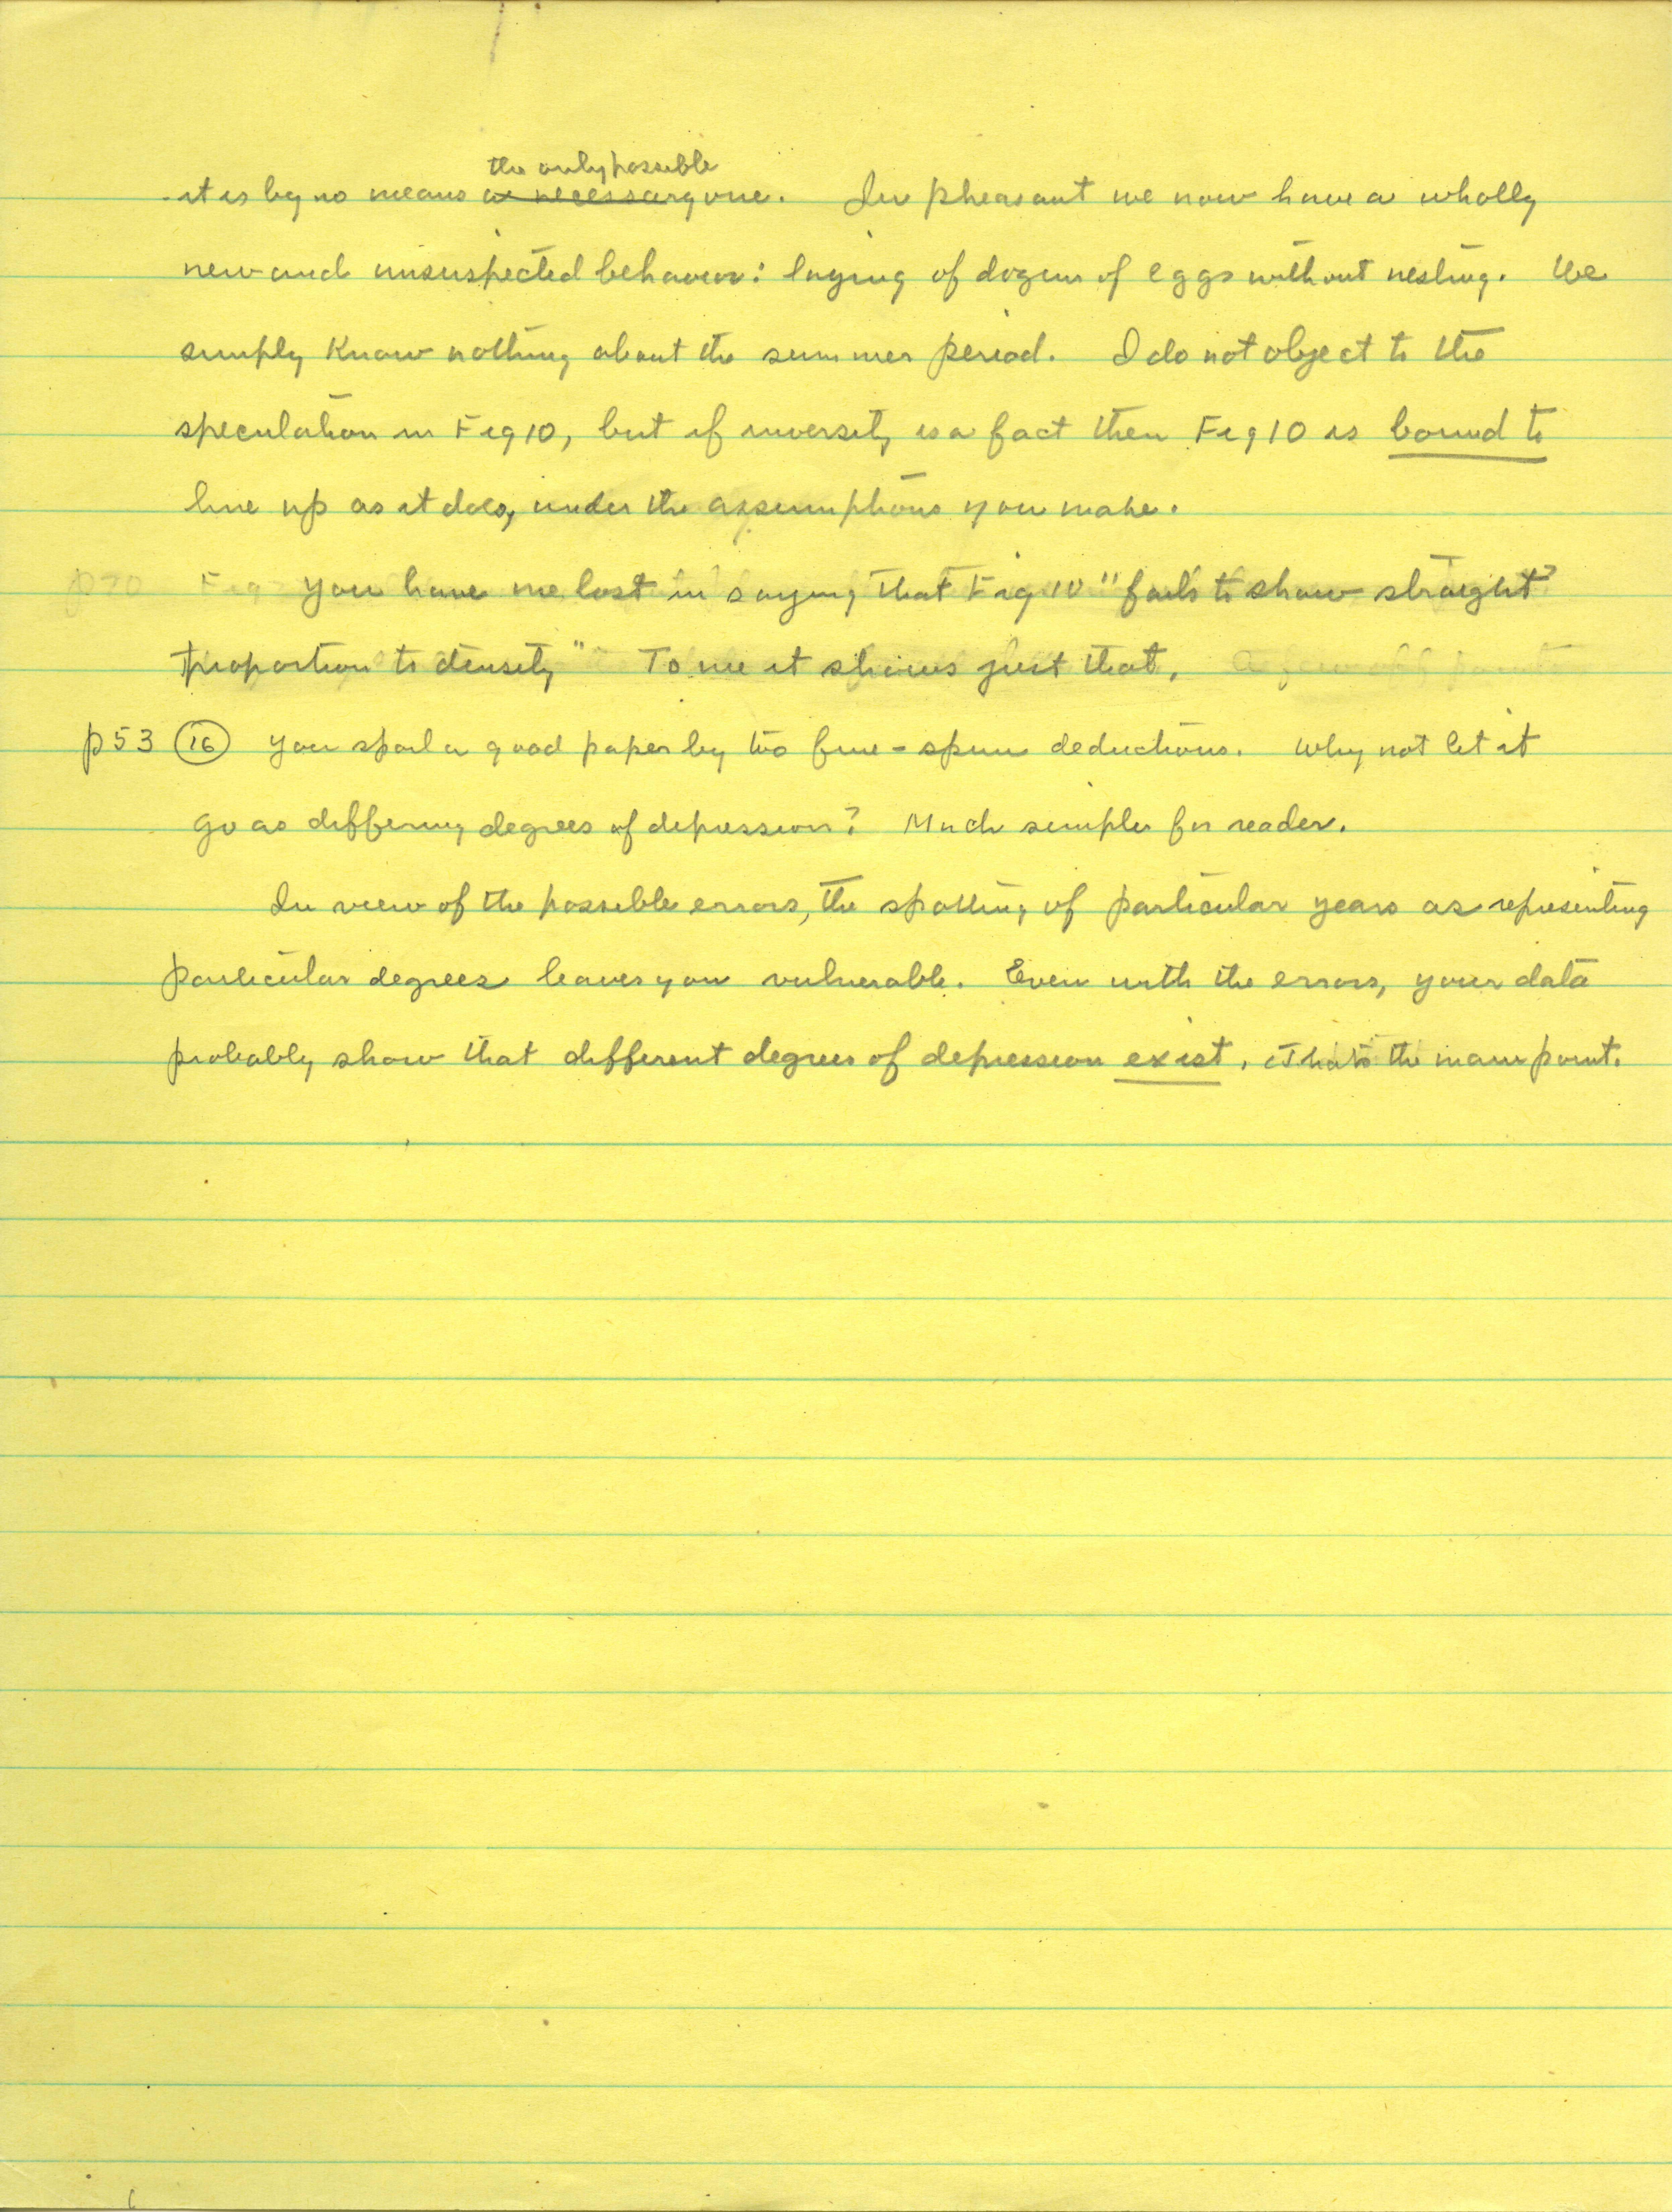 the only possible
it is by no means a necessary one. In pheasant we now have a wholly
new and unsuspected behavior: laying of dozens of eggs without nesting. We
simply know nothing about the summer period. I do not object to the
speculation in Fig 10, but if inversity is a fact then Fig 10 is bound to
line up as it does, under the assumptions you make.
p70 Fig You have me lost in saying that Fig 10 "fails to show straight
proportion to density" To me it shows just that. A few off points
p53 16 You spoil a good paper by too fine-spun deductions. Why not let it
go as differing degrees of depression? Much simpler for reader.
In view of the possible errors, the spotting of particular years as representing
particular degrees leaves you vulnerable. Even with the errors, your data
probably show that different degrees of depression exist. That's the main point.